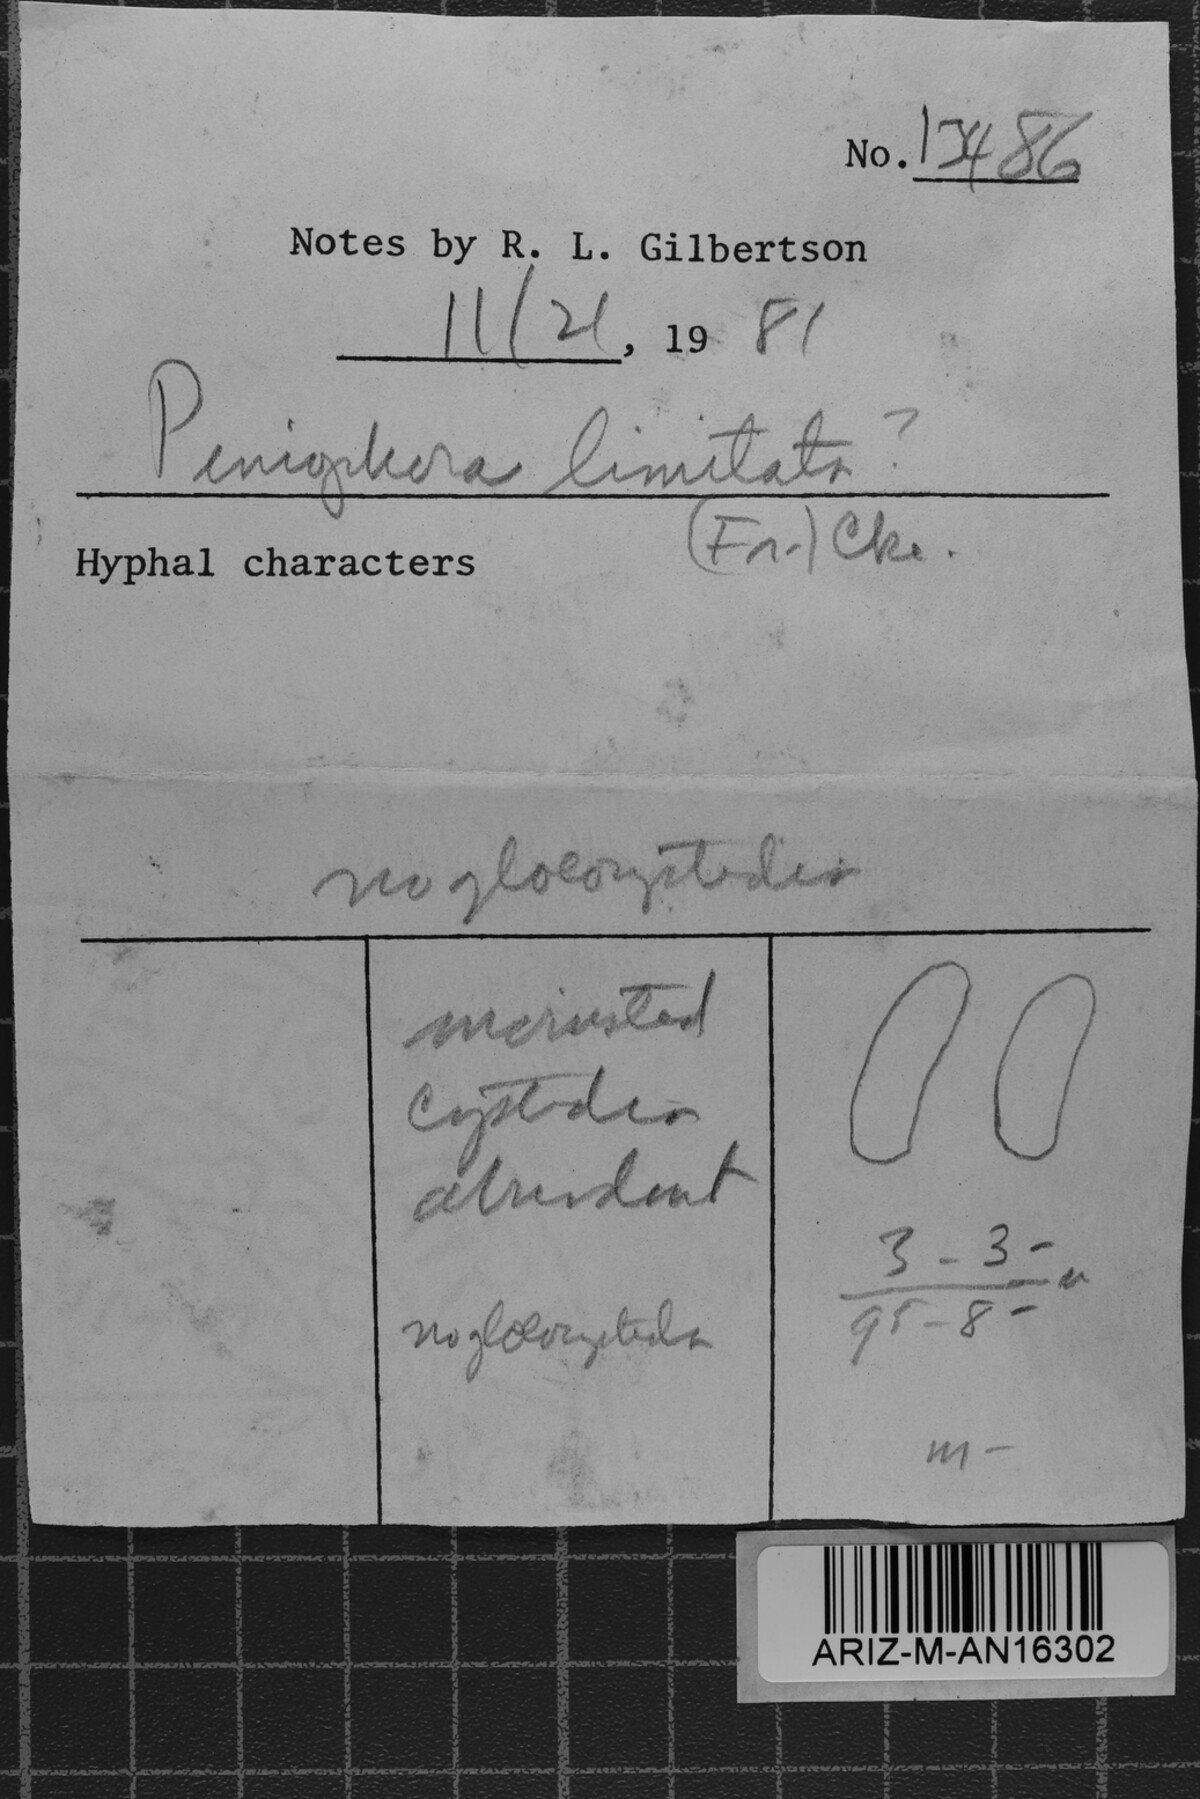 No. 13486
Notes by R. L. Gilbertson
11/21, 19 81
Peniophora limitata ?
(Fr.) Cke.
Hyphal characters
no gloeocystidia
incrusted
cystidia
abundant
no gloeocystidia
3 - 3 -
95 - 8 -
m -
ARIZ-M-AN16302